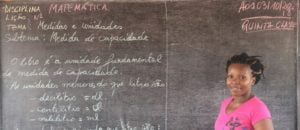 DISCIPLINA MATEMÁTICA
LIÇÃO Nº
TEMA: Medidas e unidades
Subtema: Medida de capacidade
O litro é a unidade fundamental
de medida de capacidade.
As unidades menores do que litro são:
- decilitro = dl
- centilitro = cl
- mililitro = ml
QUINTA CLASSE